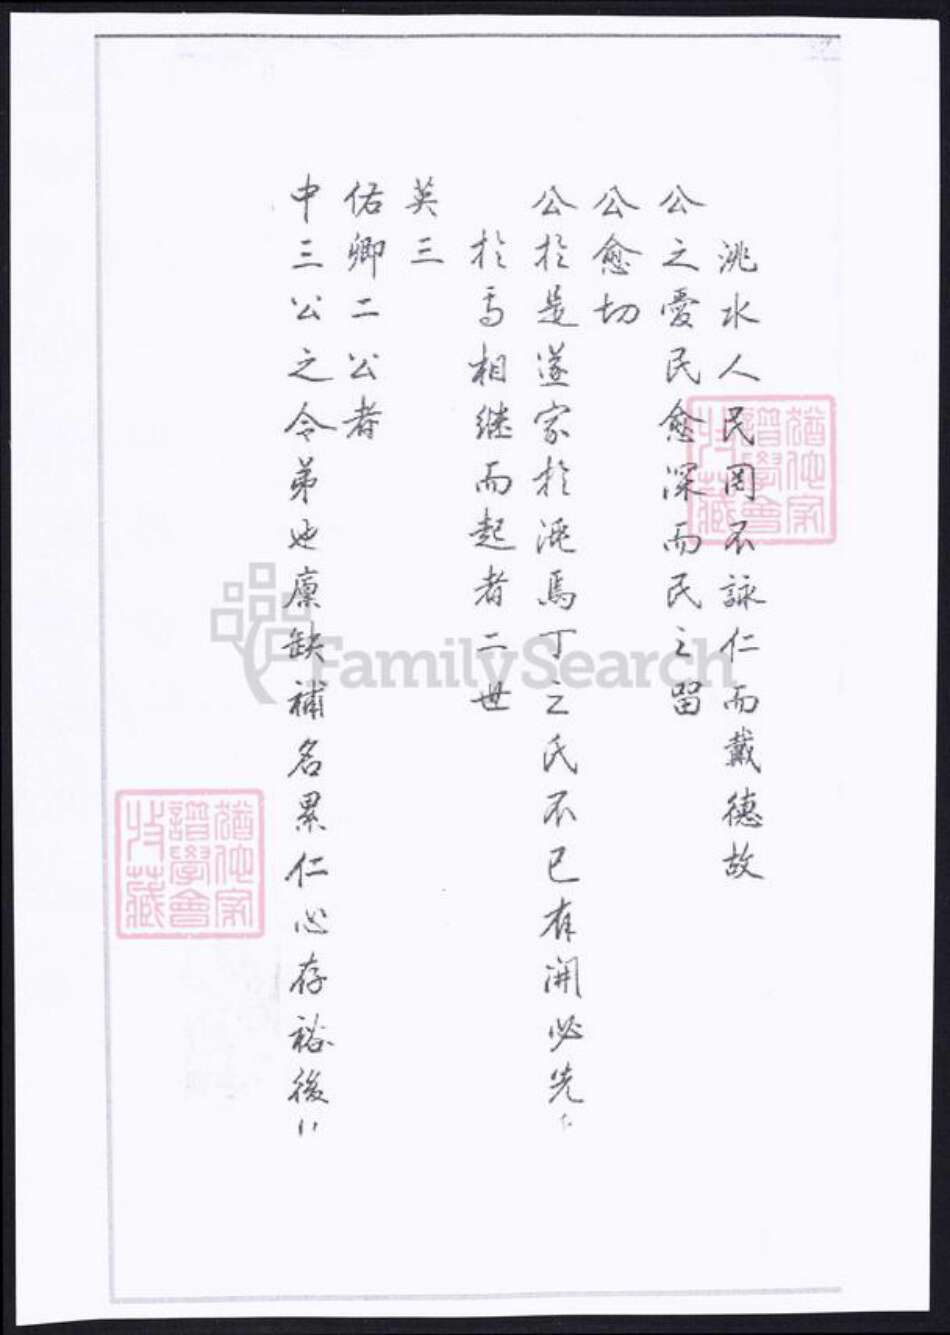 洮水人民罔不詠仁而戴德故
公之愛民愈深而民之留
公愈切
公於是遂家於洮焉丁之氏不已有開必先
於焉相继而起者二世
英三
佑卿二公者
中三公之令弟也廪缺補名累仁心存裕後
FamilySearch